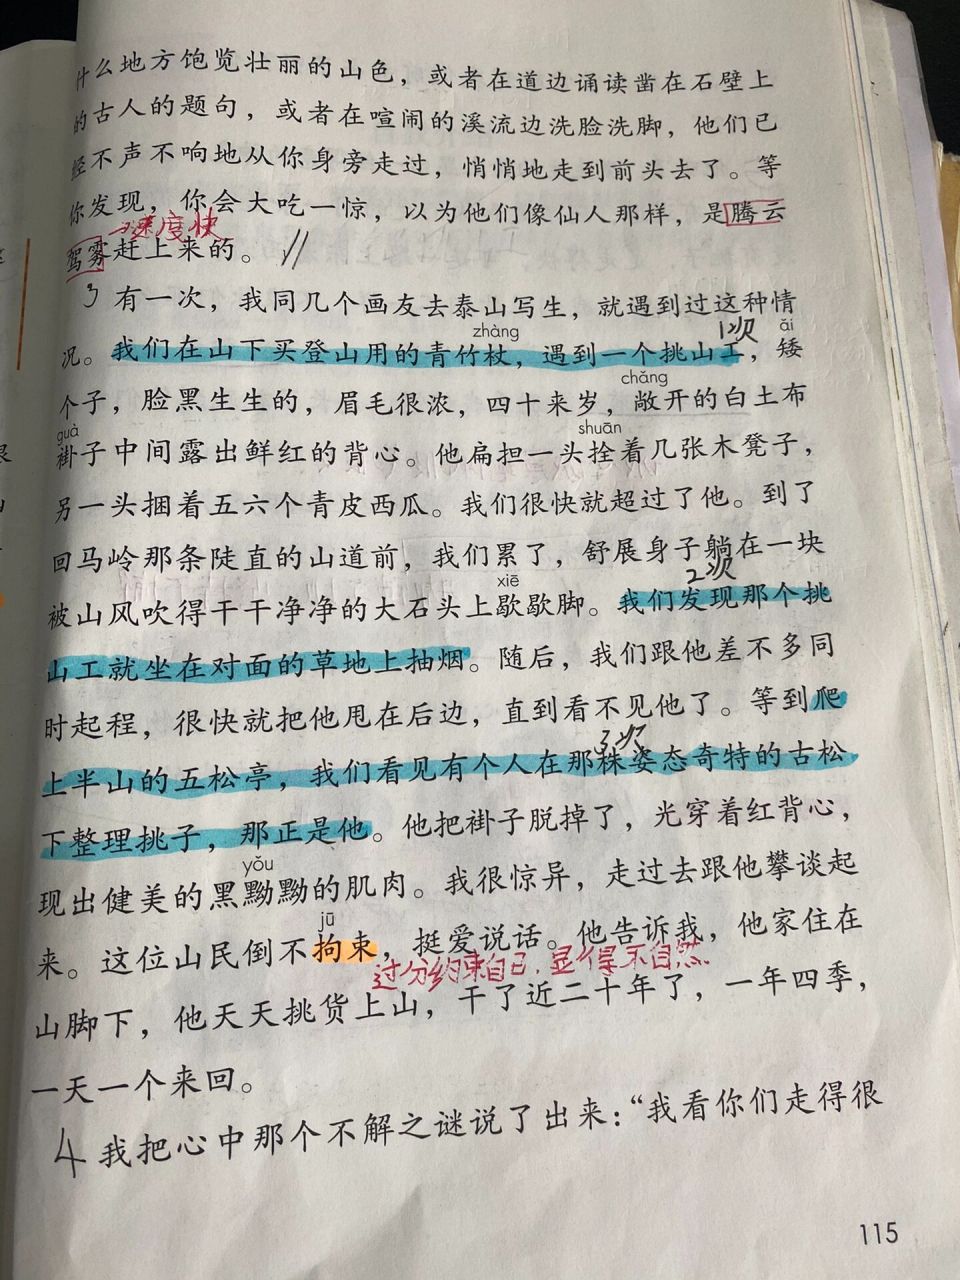 什么地方饱览壮丽的山色，或者在道边诵读凿在石壁上
的古人的题句，或者在喧闹的溪流边洗脸洗脚，他们已
经不声不响地从你身旁走过，悄悄地走到前头去了。等
你发现，你会大吃一惊，以为他们像仙人那样，是腾云
速度快
驾雾赶上来的。
3 有一次，我同几个画友去泰山写生，就遇到过这种情
zhàng 1次 ǎi
况。我们在山下买登山用的青竹杖，遇到一个挑山工，矮
chǎng
个子，脸黑生生的，眉毛很浓，四十来岁，敞开的白土布
guà shuān
褂子中间露出鲜红的背心。他扁担一头拴着几张木凳子，
另一头捆着五六个青皮西瓜。我们很快就超过了他。到了
回马岭那条陡直的山道前，我们累了，舒展身子躺在一块
xiē 2次
被山风吹得干干净净的大石头上歇歇脚。我们发现那个挑
山工就坐在对面的草地上抽烟。随后，我们跟他差不多同
时起程，很快就把他甩在后边，直到看不见他了。等到爬
3次
上半山的五松亭，我们看见有个人在那株姿态奇特的古松
下整理挑子，那正是他。他把褂子脱掉了，光穿着红背心，
yǒu
现出健美的黑黝黝的肌肉。我很惊异，走过去跟他攀谈起
jū
来。这位山民倒不拘束，挺爱说话。他告诉我，他家住在
过分约束自己，显得不自然
山脚下，他天天挑货上山，干了近二十年了，一年四季，
一天一个来回。
4 我把心中那个不解之谜说了出来：“我看你们走得很
115